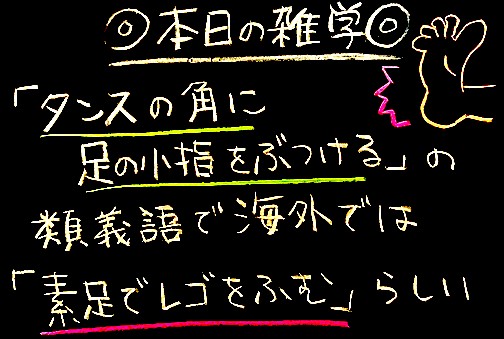 ◎本日の雑学◎
「タンスの角に
足の小指をぶつける」の
類義語で海外では
「素足でレゴをふむ」らしい